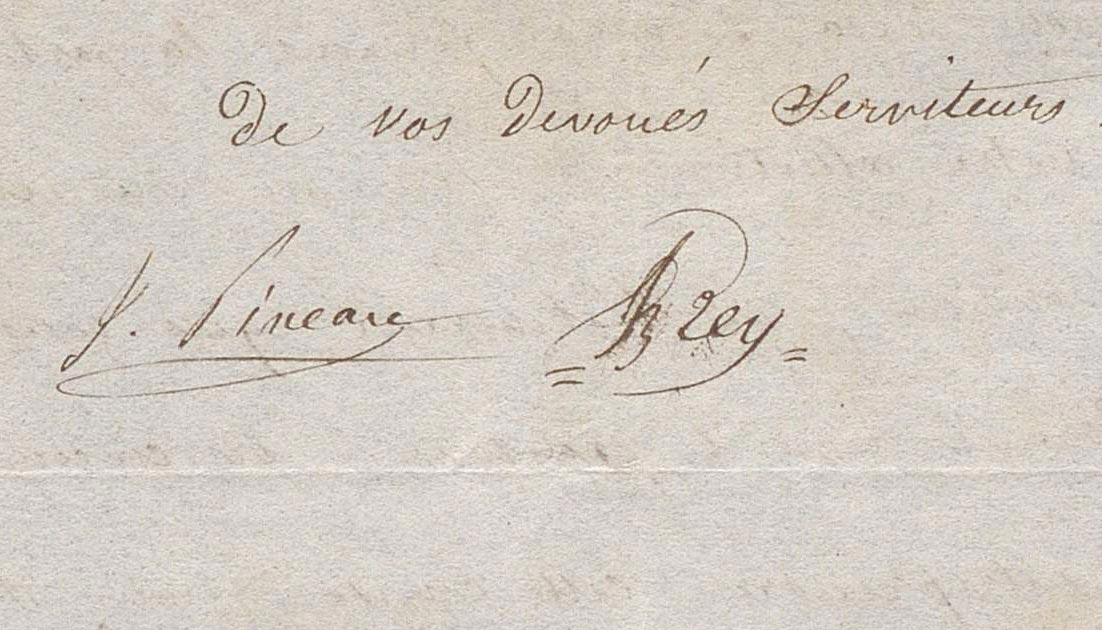 de vos devoués Serviteurs.
J. Pineau Rey